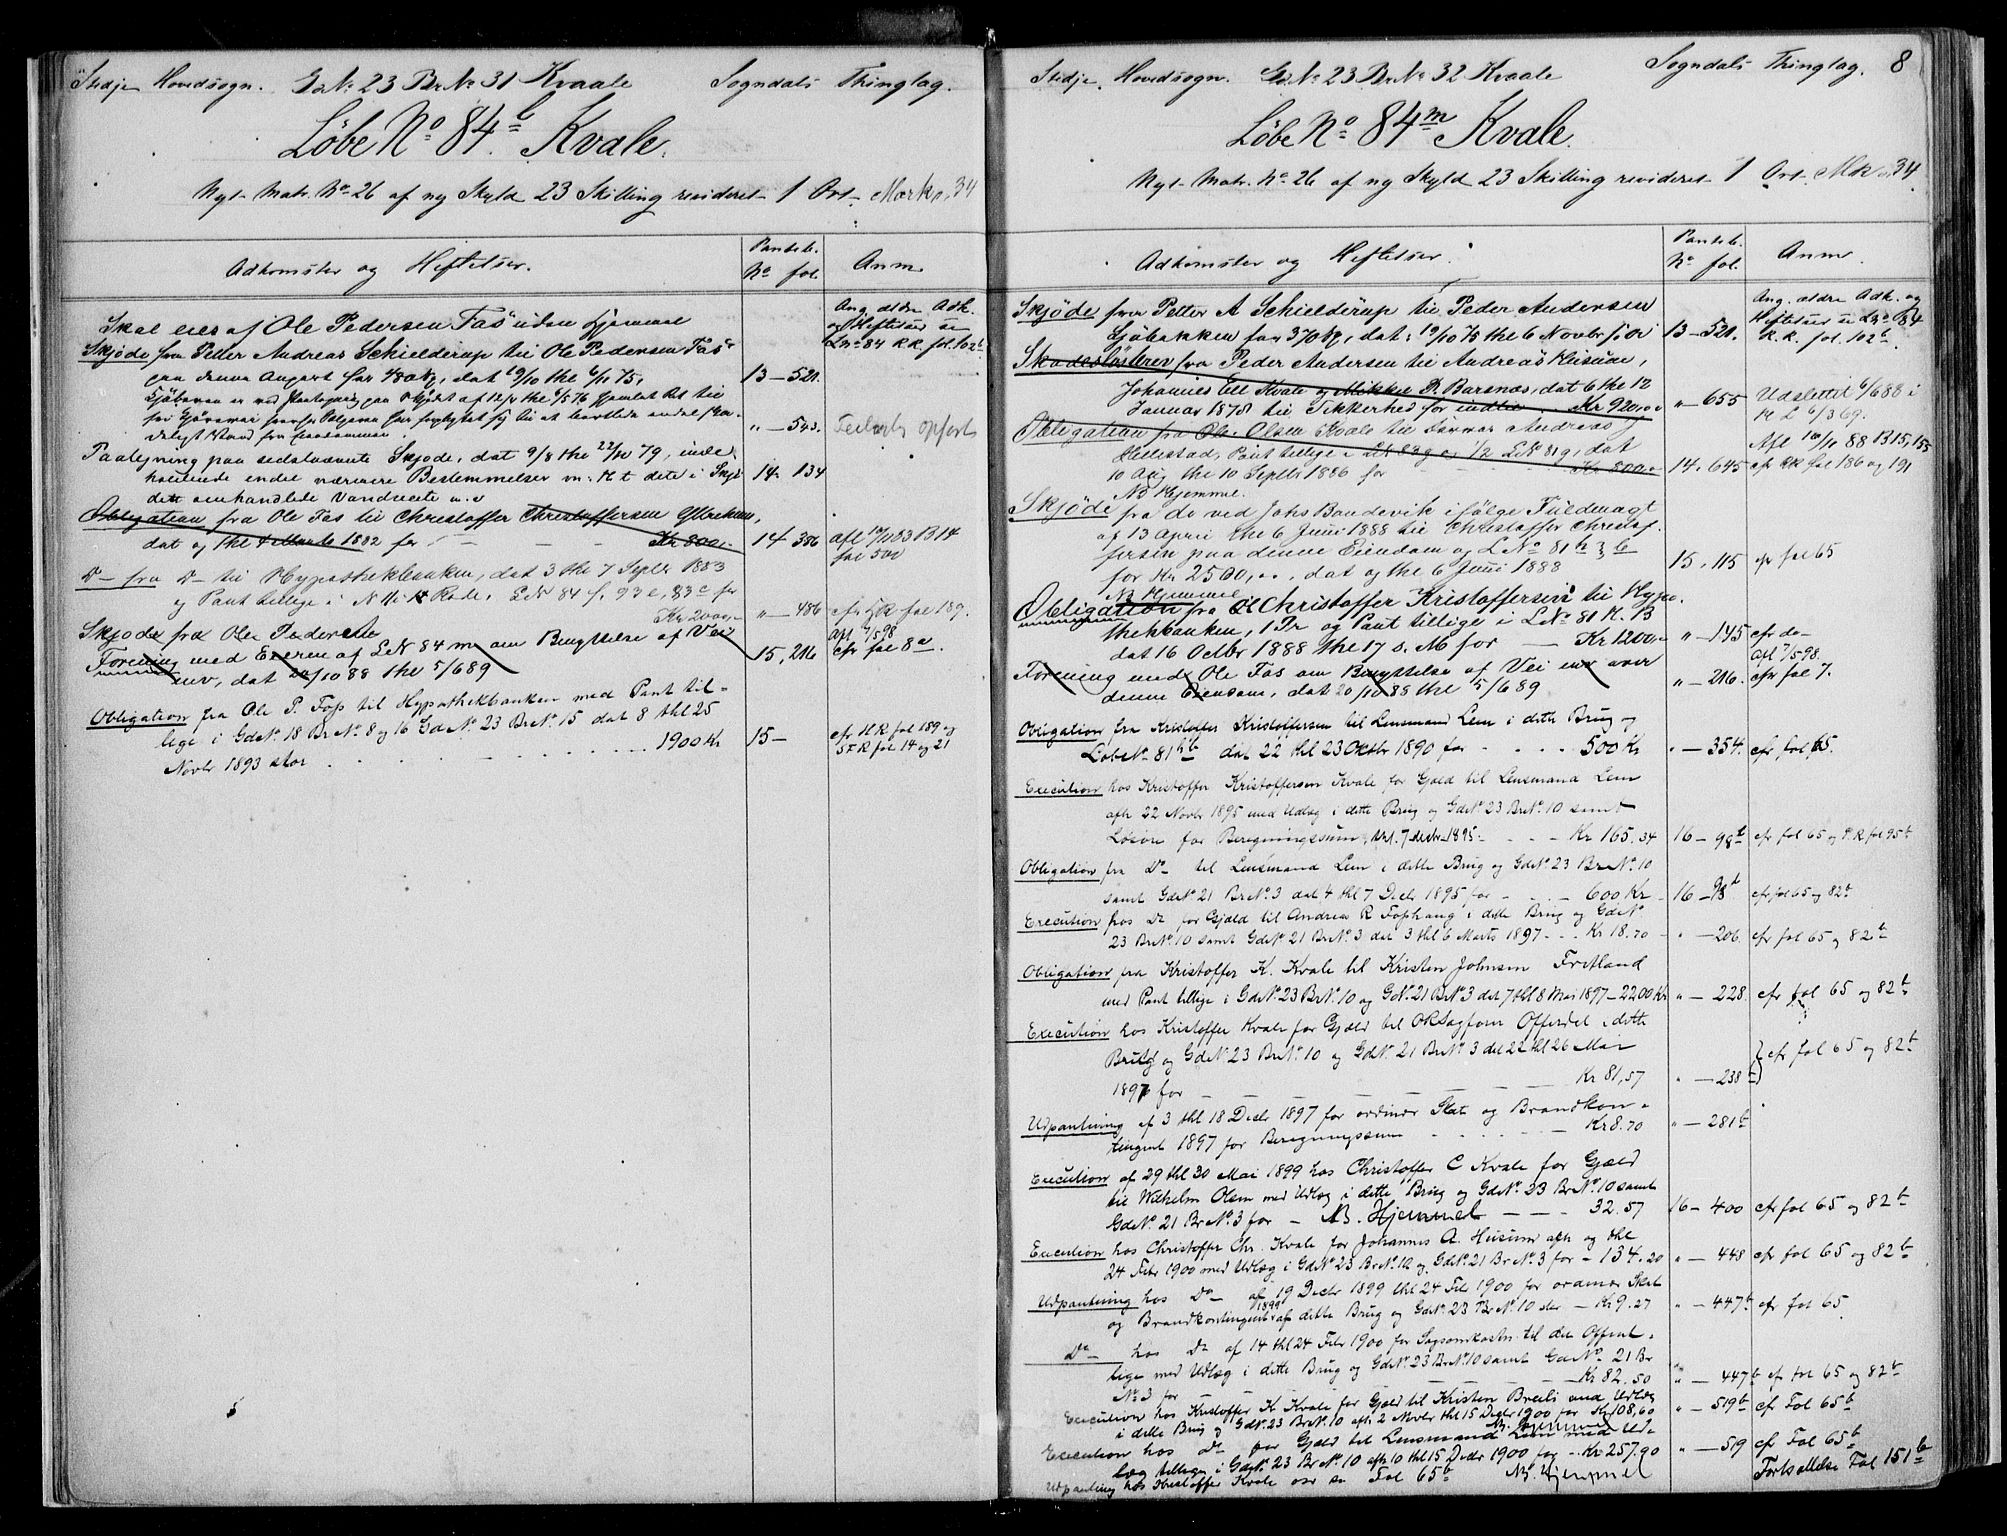 Stedje Hovedsogn. G.No 23 Br.No 31 Kvaale Sogndals Thinglag.
Löbe No 84 l Kvale.
Nyt Matr. No 26 af ny Skyld 23 Skilling revideret 1 Ort Mark 0,34
Adkomster og Heftelser. Panteb. No fol. Anm.
Skal eies af Ole Pedersen Fas uden Hjemmel Ang. ældre Adk. og Heftelser se Lno 84 R.R. fol. 102b
Skjøde fra Petter Andreas Schielderup til Ole Pedersen Fas
paa denne Anpart for 480 kr, dat 19/10 thl 6/11 75, 13 – 521.
" – 543. Feilagtig opført
Paategning paa sidstnævnte Skjøde, dat 9/8 thl 22/10 79, inde-
holdende endel nærmere Bestemmelser m: H t dete i Skjø 14. 134
dett omhandlede Vandveite m.v
Obligation fra Ole Fas til Christoffer Christoffersen Ytrekvam,
dat og thl 4 Marts 1882 for – – – Kr 800,- 14 386 Afl 17/1103 B 14 fol 500
Do – fra Do – til Hypothekbanken, dat 3 thl 7 Septbr 1883
og Pant tillige i LN 84 f, 93 e, 83 c for
Kr 2000,- " – 486 cfr RR fol 189. Afl 7/5 98
Skjøde fra Ole Pedersen
Forening med Eieren af LN 84 m om Benyttelse af Vei 15, 216 cfr fol 8 a.
mv, dat 20/10 88 thl 5/6 89
Obligation fra Ole P. Fas til Hypothekbanken med Pant til-
lige i GdNo. 18 BrNo. 8 og 16 GdNo. 23 BrNo. 15 dat 8 thl 25
Novbr 1893 stor . . . . 1900 Kr 15 – cfr RR fol 189 og fol 14 og 21
Stedje Hovedsogn. G.No 23 Br.No 32 Kvaale Sogndals Thinglag. 8
Löbe No 84 m Kvale.
Nyt Matr. No 26 af ny Skyld 23 Skilling revideret 1 Ort. Mk 0,34
Adkomster og Heftelser. Panteb. No fol. Anm.
Skjøde fra Petter A Schielderup til Peder Andersen Ang. ældre Adk. og Heftelser se Lno 84
Gjøbakken for 370 kr, dat: 19/10 75 thl 6 Novbr s. A. 13 – 521. R.R. fol. 102b.
Skadesløsbrev fra Peder Andersen til Andreas Husum,
Johannes Kvale og Mikkel P. Barsnæs, dat 6 thl 12
Januar 1878 til Sikkerhed for indtil . Kr 920,00 " – 655 Udslettet 6/6 88
Obligation fra Ole Olsen Kvale til Andreas
Hellestad, Pant tillige i LN 83 g og 1/2 LN 81 g, dat Afl 10/11 88 B 15, 155
10 Aug thl 10 Septbr 1886 for Kr 800,- 14. 645 cfr RR fol 186 og 191
NB Hjemmel.
Skjøde fra do ved Johs Bondevik i følge Fuldmagt
af 13 April thl 6 Juni 1888 til Christoffer Christof-
fersen paa denne Eiendom og LNo 81 h & b
for Kr 2500,00, dat og thl 6 Juni 1888 15, 115 cfr fol 65
NB Hjemmel
Obligation fra Christoffer Kristoffersen til Hypo-
thekbanken, 1 Pr og Pant tillige i LNo 81 H. B
dat 16 Octbr 1888 thl 17 s. M for – Kr 1200,- " – 145 cfr do – Afl 7/5 98.
Forening med Ole Fas om Benyttelse af Vei mv over
denne Eiendom, dat 20/10 88 thl 5/6 89 " – 216. cfr fol 7.
Obligation fra Kristoffer Kristoffersen til Lensmand Lem i dette Brug og
LøbeNo. 81 h b dat 22 thl 23 Oktbr 1890 for . . . . 500 Kr " – 354. cfr fol 65.
Execution hos Kristoffer Kristoffersen Kvale for Gjæld til Lensmand Lem
afh 22 Novbr 1895 med Udlæg i dette Brug og GdNo. 23 BrNo. 10 samt
Løsøre for Beregningssum, thl. 7 decbr 1895 – Kr 165.34 16 – 98b cfr fol 65 og RR fol 95b
Obligation fra Do til Lensmand Lem i dette Brug og GdNo. 23 BrNo. 10
samt GdNo. 21 BrNo. 3 dat 4 thl 7 Decbr 1895 for – 600 Kr 16 – 98b cfr fol 65 og 82b
Execution hos Do for Gjæld til Andrea R Foshaug i dette Brug og GdNo
23 BrNo. 10 samt GdNo. 21 BrNo. 3 dat 3 thl 6 Marts 1897 . . . Kr 18.70 " – 206. cfr fol 65 og 82b
Obligation fra Kristoffer K. Kvale til Kristen Johnsen Fretland
med Pant tillige i GdNo. 23 BrNo. 10 og GdNo. 21 BrNo. 3 dat 7 thl 8 Mai 1897 – 2200 Kr " – 228. cfr fol 65 og 82b
Execution hos Kristoffer Kvale for Gjæld til OR Sagfører Offerdal i dette
Brug og GdNo. 23 BrNo. 10 og GdNo. 21 BrNo. 3 dat 22 thl 26 Mai
1897 for – – – – Kr 81,57 " – 238 b } cfr fol 65 og 82b
Udpantning af 3 thl 18 Decbr 1897 for ordinær Skat og Brandkon-
tingent 1897 for Beregningssum . . . . – Kr 8.70 " – 281b
Execution af 29 thl 30 Mai 1899 hos Christoffer C Kvale for Gjæld
til Wilhelm Olsen med Udlæg i dette Brug og GdNo. 23 BrNo. 10 samt
GdNo. 21 BrNo. 3 for – NB. Hjemmel – – – 32.57 16 – 400 cfr fol 65 og 82b
Execution hos Christoffer Chr. Kvale for Johannes A. Husum afh og thl
24 Febr 1900 med Udlæg i GdNo. 23 BrNo. 10 og GdNo. 21 BrNo. 3 for – 134.20 " – 448 cfr fol 65 og 82b
Udpantning hos Do – af 19 Decbr 1899 thl 24 Feb 1900 for ordinær Skat
og Brandkontingent 1899 af dette Brug og GdNo. 23 BrNo. 10 – Kr 9.27 " – 447b cfr fol 65
Do – hos Do af 14 thl 24 Febr 1900 for Sagsomkostn. til det Offent-
lige med Udlæg i dette Brug og GdNo. 23 BrNo. 10 samt GdNo. 21 Br
No. 3 for – – – – Kr 82.50 " – 447b cf fol 65 og 82b
Execution hos Kristoffer K Kvale for Gjæld til Kristen med Udlæg
i dette Brug og GdNo. 23 BrNo. 10 afh 2 Novbr thl 15 Decbr 1900 for Kr 108,60 " – 519b cfr Fol 65b
NB. Hjemmel
Execution hos Do for Gjæld til Lensmand Lem med Ud-
læg tillige i GdNo. 23 BrNo. 10 afh 10 thl 15 Decbr 1900 for – Kr 257.90 " – 519 cfr Fol 65b
Udpantning hos Kristoffer Kvale osv se Fol 65b NB. Hjemmel Fortsættelse Fol 151b